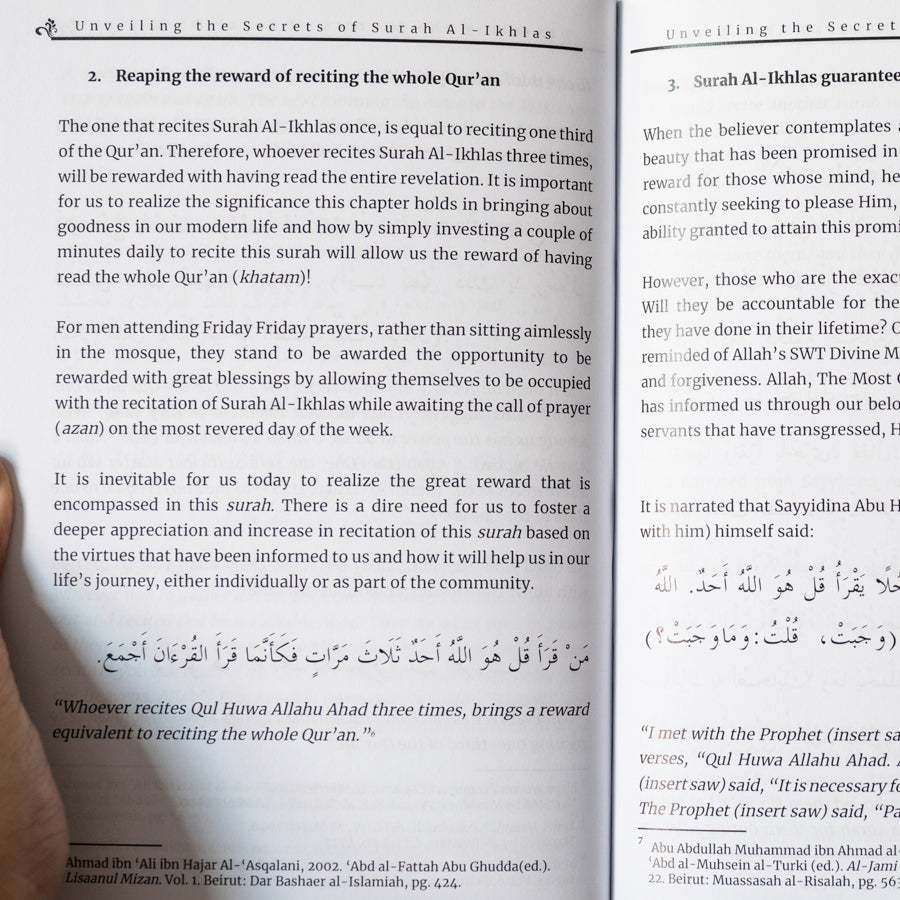 Unveiling the Secrets of Surah Al-Ikhlas
2. Reaping the reward of reciting the whole Qur’an
The one that recites Surah Al-Ikhlas once, is equal to reciting one third
of the Qur’an. Therefore, whoever recites Surah Al-Ikhlas three times,
will be rewarded with having read the entire revelation. It is important
for us to realize the significance this chapter holds in bringing about
goodness in our modern life and how by simply investing a couple of
minutes daily to recite this surah will allow us the reward of having
read the whole Qur’an (khatam)!
For men attending Friday Friday prayers, rather than sitting aimlessly
in the mosque, they stand to be awarded the opportunity to be
rewarded with great blessings by allowing themselves to be occupied
with the recitation of Surah Al-Ikhlas while awaiting the call of prayer
(azan) on the most revered day of the week.
It is inevitable for us today to realize the great reward that is
encompassed in this surah. There is a dire need for us to foster a
deeper appreciation and increase in recitation of this surah based on
the virtues that have been informed to us and how it will help us in our
life’s journey, either individually or as part of the community.
مَنْ قَرَأَ قُلْ هُوَ اللَّهُ أَحَدٌ ثَلَاثَ مَرَّاتٍ فَكَأَنَّمَا قَرَأَ القُرْءَانَ أَجْمَعَ.
“Whoever recites Qul Huwa Allahu Ahad three times, brings a reward
equivalent to reciting the whole Qur’an.”6
Ahmad ibn ‘Ali ibn Hajar Al-‘Asqalani, 2002. ‘Abd al-Fattah Abu Ghudda(ed.).
Lisaanul Mizan. Vol. 1. Beirut: Dar Bashaer al-Islamiah, pg. 424.
Unveiling the Secret
3. Surah Al-Ikhlas guarantee
When the believer contemplates
beauty that has been promised in
reward for those whose mind, he
constantly seeking to please Him,
ability granted to attain this promi
However, those who are the exac
Will they be accountable for the
they have done in their lifetime?
reminded of Allah’s SWT Divine M
and forgiveness. Allah, The Most
has informed us through our belo
servants that have transgressed, H
It is narrated that Sayyidina Abu H
with him) himself said:
يَقْرَأُ قُلْ هُوَ اللَّهُ أَحَدٌ. اللَّهُ
(وَجَبَتْ، قُلْتُ: وَمَا وَجَبَتْ؟)
“I met with the Prophet (insert sa
verses, “Qul Huwa Allahu Ahad.
(insert saw) said, “It is necessary fo
The Prophet (insert saw) said, “Pa
7 Abu Abdullah Muhammad ibn Ahmad al-
‘Abd al-Muhsein al-Turki (ed.). Al-Jami
22. Beirut: Muassasah al-Risalah, pg. 563